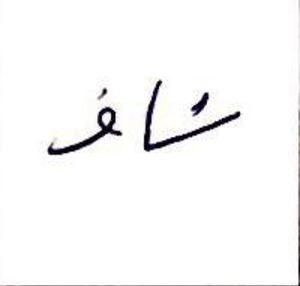 شاف